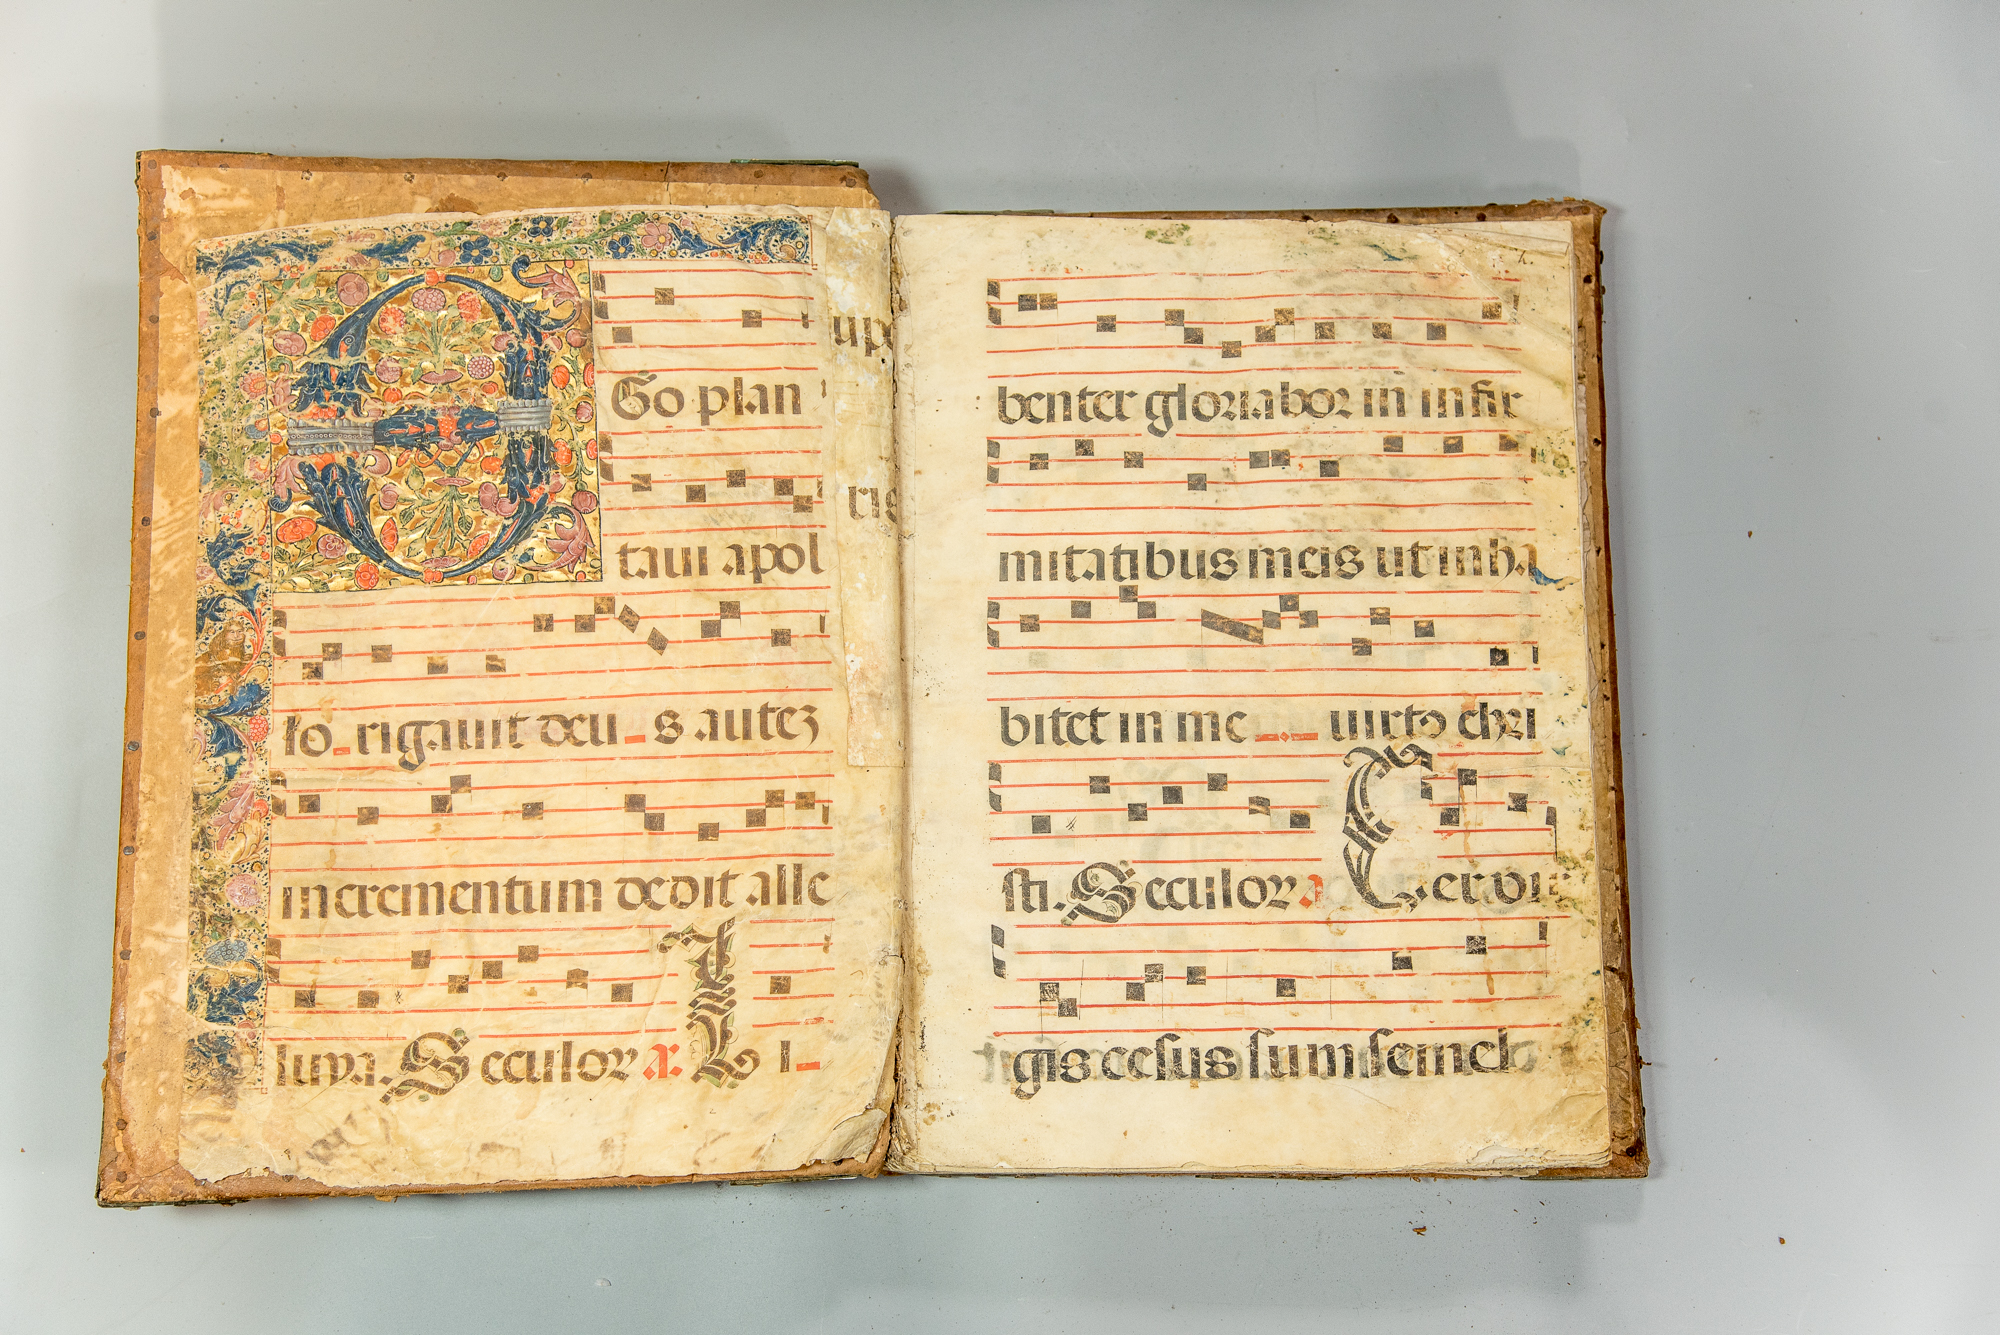 EGo plan
taui apol
lo rigauit deus autez
incrementum dedit alle
luya. Seculorx. Li
upe
rig
benter gloriabor in infir
mitatibus meis ut inha
bitet in me uirt⁹ chri
sti. Seculorx Ter uir
gis cesus sum semel